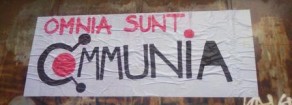 OMNIA SUNT
COMMUNIA